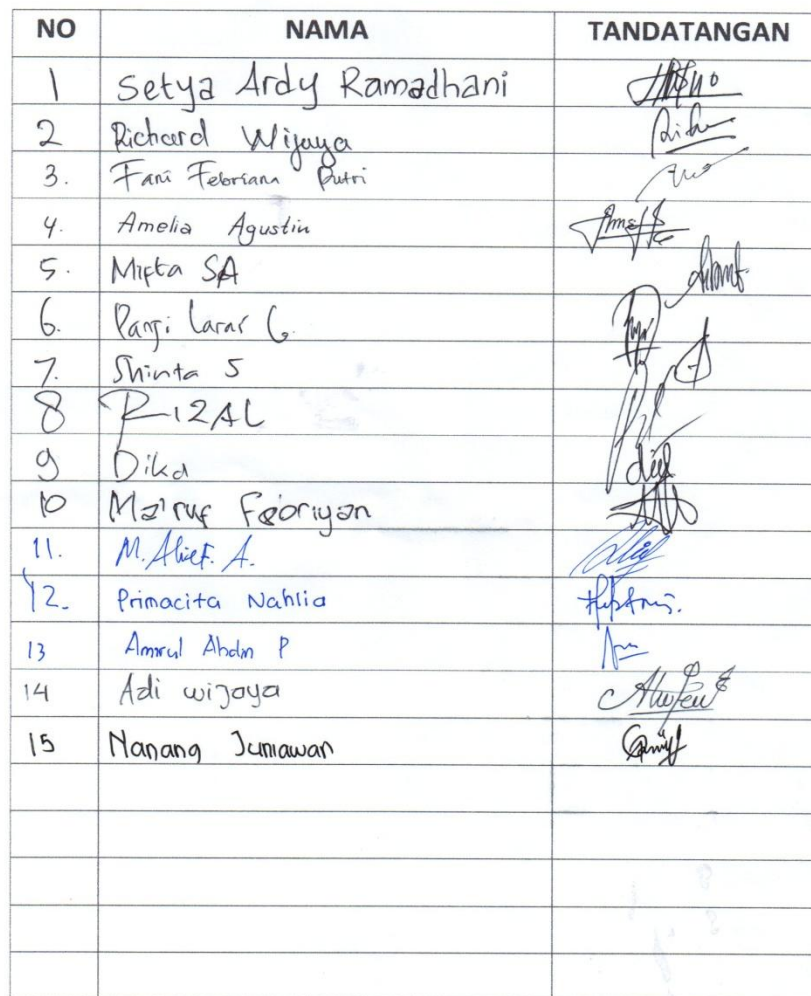 NO NAMA TANDATANGAN
1 Setya Ardy Ramadhani
2 Richard Wijaya
3. Fani Febriana Putri
4. Amelia Agustin
5. Mifta SA
6. Panji Laras G.
7. Shinta S
8 RIZAL
9 Dika
10 Ma'ruf Febriyan
11. M. Alief. A.
12. Primacita Nahlia
13 Amrul P
14 Adi wijaya
15 Nanang Juniawan